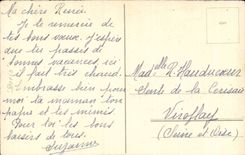 Ma chère Renée
Je te remercie de
tes bons vœux. J'espère
que tu passes de
bonnes vacances, ici
il fait très chaud.
Embrasse bien pour
moi ta maman ton
papa et les mimis.
Pour toi les bons
baisers de tous.
Suzanne
Madelle R. Hauducœur
Route de la Cerisaie
Viroflay
(Seine et Oise)